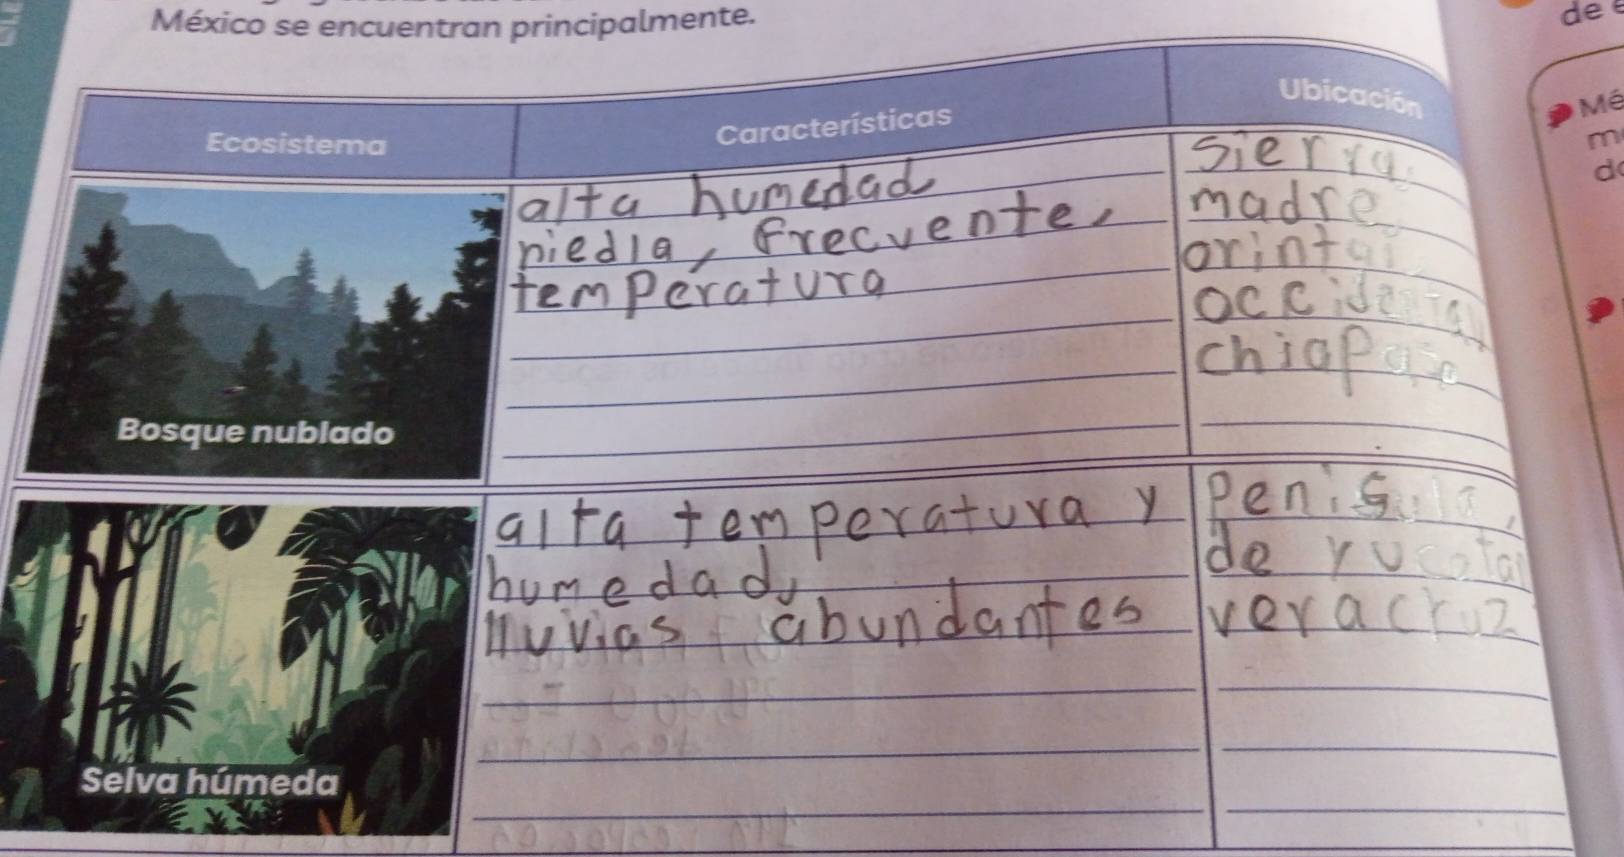 México se encuentran principalmente.
de
Ecosistema
Características
Ubicación
Mé
m
d
alta humedad
niedla, frecvente,
temperatura
Sierra
madre
orintal
occidental
chiapas
Bosque nublado
alta temperatura y
humedad,
lluvias abundantes
Penisula,
de yucatan
veracruz
Selva húmeda